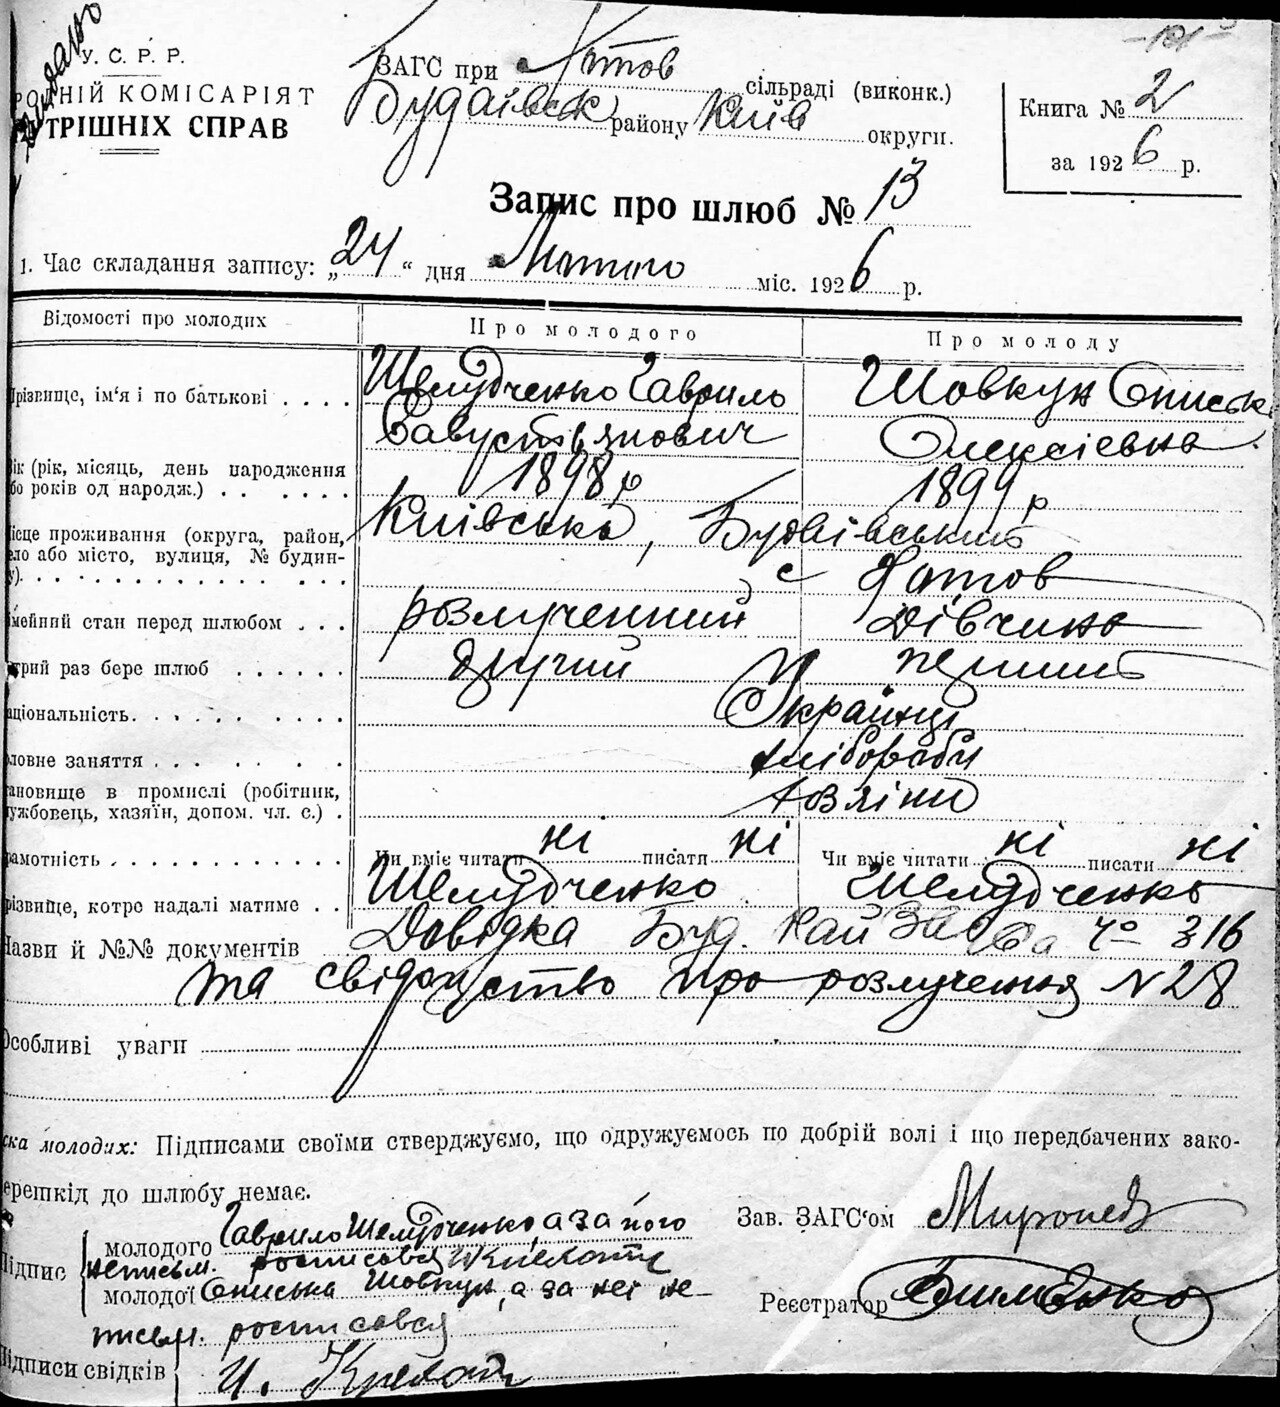 Видано
-121-
У. С. Р. Р.
РОДНІЙ КОМІСАРІЯТ
УТРІШНІХ СПРАВ
ЗАГС при Хотов сільраді (виконк.)
Будаївськ району Київ округи.
Книга № 2
за 1926 р.
Запис про шлюб № 13
1. Час складання запису: „24“ дня Лютого міс. 1926 р.
Відомості про молодих
Про молодого
Про молоду
Прізвище, ім‘я і по батькові . . . .
Шелудченко Гаврило
Шовкун Ониськ
Савустьянович
Олексіевна
ік (рік, місяць, день народження
бо років од народж.) . . . . . .
1898 р
1899 р
ісце проживання (округа, район,
ело або місто, вулиця, № будин-
у). . . . . . . . . . . . . . .
Київська, Будаівський
с Хотов
імейний стан перед шлюбом . . .
розлученний
Дівчина
трий раз бере шлюб . . . . . .
другий
перший
аціональність. . . . . . . . . .
Українці
ловне заняття . . . . . . .
хлібороби
ановище в промислі (робітник,
ужбовець, хазяїн, допом. чл. с.) .
хозяіни
рамотність . . . . . . . . . . . .
Чи вміє читати ні писати ні
Чи вміє читати ні писати ні
різвище, котре надалі матиме . .
Шелудченко
Шелудченко
Назви й №№ документів
Довідка Буд. Рай Загса Чо 316
та свідоцтво про розлучення N 28
Особливі уваги
ска молодих: Підписами своїми стверджуємо, що одружуємось по добрій волі і що передбачених зако-
ерешкід до шлюбу немає.
Підпис
молодого Гаврило Шелудченко, а за його
неписьм. росписався
молодої Ониська Шовкун, а за неі не-
письм. росписався
Підписи свідків
Зав. ЗАГС‘ом
Реєстратор